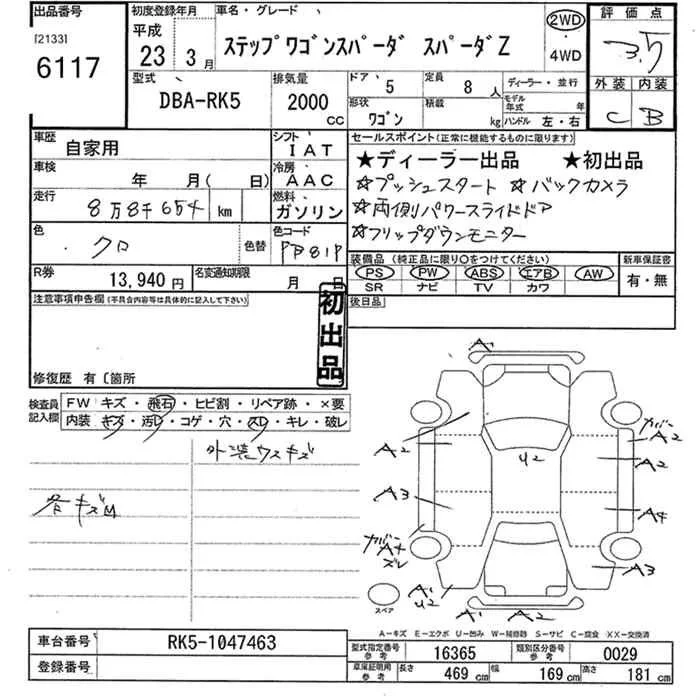 出品番号
[2133]
6117
初度登録年月
平成
23年3月
車名・グレード
ステップワゴンスパーダ スパーダZ
2WD
・
4WD
評価点
3.5
外装 内装
C B
型式
DBA-RK5
排気量
2000
CC
ドア
5
定員
8人
形状
ワゴン
積載
kg
ディーラー・並行
モデル年式 年
ハンドル 左・右
車歴
自家用
シフト
IAT
車検
年 月( 日)
冷房
AAC
走行
8万8千654 km
燃料
ガソリン
色
クロ
色替
色コード
PB81P
R券
13,940円
名変通知期限
月 日
セールスポイント(正常に機能するものに限ります)
★ディーラー出品 ★初出品
☆プッシュスタート ☆バックカメラ
☆両側パワースライドドア
☆フリップダウンモニター
装備品(純正品に限り○をつけてください)
PS PW ABS エアB AW
SR ナビ TV カワ
新車保証書
有・無
注意事項申告欄(不具合内容等は具体的に記入して下さい)
初出品
後日品
修復歴 有〔箇所
検査員記入欄
FW キズ・飛石・ヒビ割・リペア跡・×要
内装 キズ・汚レ・コゲ・穴・スレ・キレ・破レ
外装ウスキズ
各キズM
A
A2
U2
カバーA2
A2
A3
A4
カバーA+
ズレ
A3
スペア
A1
U2
A1
A2
A−キズ E−エクボ U−凹み W−補修跡 S−サビ C−腐食 XX−交換済
車台番号
RK5-1047463
登録番号
型式指定番号
参考
16365
類別区分番号
参考
0029
車庫証明用
参考
長さ
469 cm
幅
169 cm
高さ
181 cm